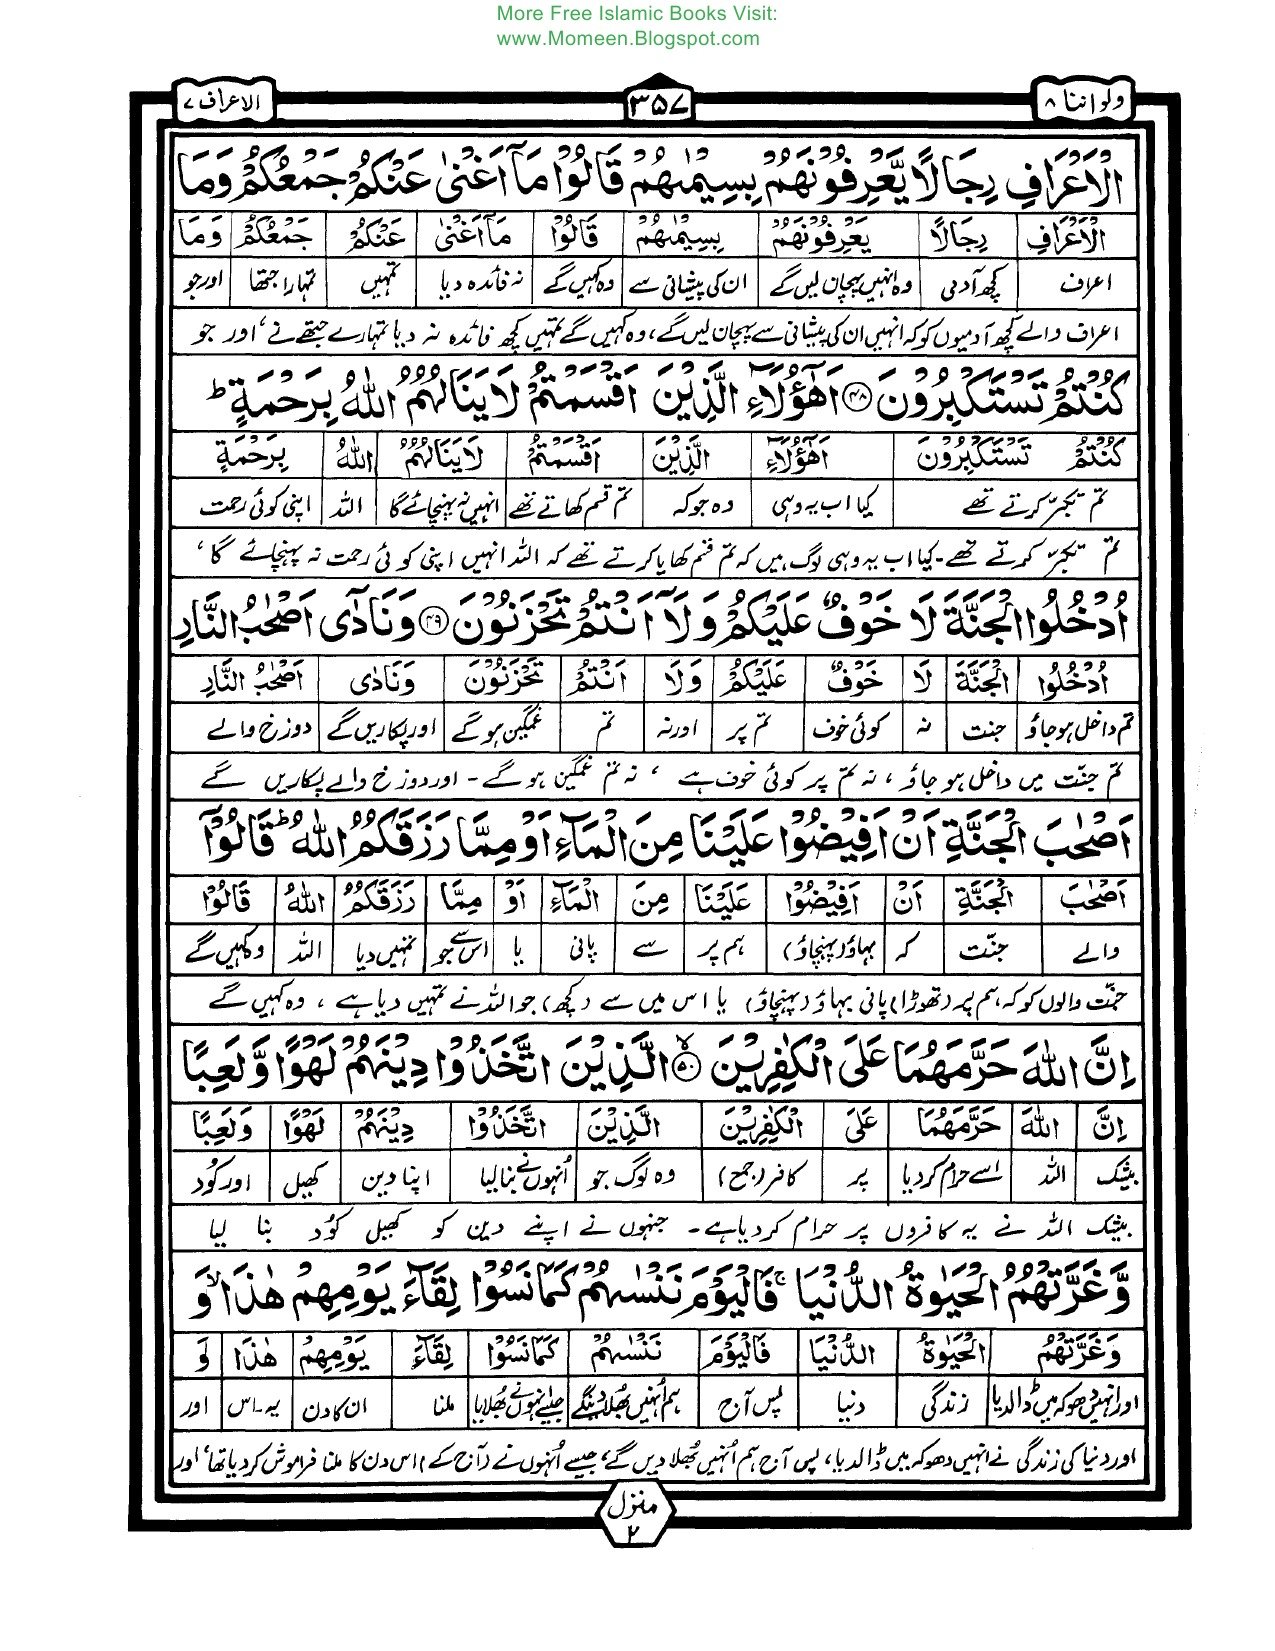 More Free Islamic Books Visit:
www.Momeen.Blogspot.com
ولو اننا ٨ ٣٥٧ الاعراف ٧
الْاَعْرَافِ رِجَالًا يَّعْرِفُوْنَهُمْ بِسِيْمٰىهُمْ قَالُوْا مَاۤ اَغْنٰى عَنْكُمْ جَمْعُكُمْ وَمَا
الْاَعْرَافِ رِجَالًا يَعْرِفُوْنَهُمْ بِسِيْمٰىهُمْ قَالُوْا مَاۤ اَغْنٰى عَنْكُمْ جَمْعُكُمْ وَمَا
اعراف کچھ آدمی وہ انہیں پہچان لیں گے ان کی پیشانی سے وہ کہیں گے نہ فائدہ دیا تمہیں تمہارا جتھا اور جو
اعراف والے کچھ آدمیوں کو کہ انہیں ان کی پیشانی سے پہچان لیں گے، وہ کہیں گے تمہیں کچھ فائدہ نہ دیا تمہارے جتھے نے ، اور جو
كُنْتُمْ تَسْتَكْبِرُوْنَ ۴۸ اَهٰۤؤُلَآءِ الَّذِيْنَ اَقْسَمْتُمْ لَا يَنَالُهُمُ اللّٰهُ بِرَحْمَةٍ ؕ
كُنْتُمْ تَسْتَكْبِرُوْنَ اَهٰۤؤُلَآءِ الَّذِيْنَ اَقْسَمْتُمْ لَا يَنَالُهُمُ اللّٰهُ بِرَحْمَةٍ
تم تکبر کرتے تھے کیا اب یہ وہی وہ جو کہ تم قسم کھاتے تھے انہیں نہ پہنچائے گا اللہ اپنی کوئی رحمت
تم تکبر کرتے تھے۔ کیا اب یہ وہی لوگ ہیں کہ تم قسم کھایا کرتے تھے کہ اللہ انہیں اپنی کوئی رحمت نہ پہنچائے گا ،
اُدْخُلُوا الْجَنَّةَ لَا خَوْفٌ عَلَيْكُمْ وَلَاۤ اَنْتُمْ تَحْزَنُوْنَ ۴۹ وَنَادٰۤى اَصْحٰبُ النَّارِ
اُدْخُلُوا الْجَنَّةَ لَا خَوْفٌ عَلَيْكُمْ وَلَا اَنْتُمْ تَحْزَنُوْنَ وَنَادٰى اَصْحٰبُ النَّارِ
تم داخل ہو جاؤ جنت نہ کوئی خوف تم پر اور نہ تم غمگین ہو گے اور پکاریں گے دوزخ والے
تم جنّت میں داخل ہو جاؤ ، نہ تم پر کوئی خوف ہے ، نہ تم غمگین ہو گے - اور دوزخ والے پکاریں گے
اَصْحٰبَ الْجَنَّةِ اَنْ اَفِيْضُوْا عَلَيْنَا مِنَ الْمَآءِ اَوْ مِمَّا رَزَقَكُمُ اللّٰهُ ؕ قَالُوْۤا
اَصْحٰبَ الْجَنَّةِ اَنْ اَفِيْضُوْا عَلَيْنَا مِنَ الْمَآءِ اَوْ مِمَّا رَزَقَكُمُ اللّٰهُ قَالُوْا
والے جنّت کہ بہاؤ (پہنچاؤ) ہم پر سے پانی یا اس سے جو تمہیں دیا اللہ وہ کہیں گے
جنّت والوں کو کہ ہم پر (تھوڑا) پانی بہاؤ (پہنچاؤ) یا اس میں سے (کچھ) جو اللہ نے تمہیں دیا ہے ، وہ کہیں گے
اِنَّ اللّٰهَ حَرَّمَهُمَا عَلَى الْكٰفِرِيْنَ ۵۰ الَّذِيْنَ اتَّخَذُوْا دِيْنَهُمْ لَهْوًا وَّلَعِبًا
اِنَّ اللّٰهَ حَرَّمَهُمَا عَلَى الْكٰفِرِيْنَ الَّذِيْنَ اتَّخَذُوْا دِيْنَهُمْ لَهْوًا وَلَعِبًا
بیشک اللہ اسے حرام کر دیا پر کافر (جمع) وہ لوگ جو اُنہوں نے بنا لیا اپنا دین کھیل اور کود
بیشک اللہ نے یہ کافروں پر حرام کر دیا ہے۔ جنہوں نے اپنے دین کو کھیل کوُد بنا لیا
وَّغَرَّتْهُمُ الْحَيٰوةُ الدُّنْيَا ۚ فَالْيَوْمَ نَنْسٰىهُمْ كَمَا نَسُوْا لِقَآءَ يَوْمِهِمْ هٰذَا ۙ وَ
وَغَرَّتْهُمُ الْحَيٰوةُ الدُّنْيَا فَالْيَوْمَ نَنْسٰىهُمْ كَمَا نَسُوْا لِقَآءَ يَوْمِهِمْ هٰذَا وَ
اور انہیں دھوکہ میں ڈالدیا زندگی دنیا پس آج ہم اُنہیں بھلا دینگے جیسے انہوں نے بھلایا ملنا ان کا دن یہ۔اس اور
اور دنیا کی زندگی نے انہیں دھوکہ میں ڈالدیا، پس آج ہم اُنہیں بھُلا دیں گے، جیسے اُنہوں نے (آج کے) اس دن کا ملنا فراموش کر دیا تھا ، اور
منزل
۲